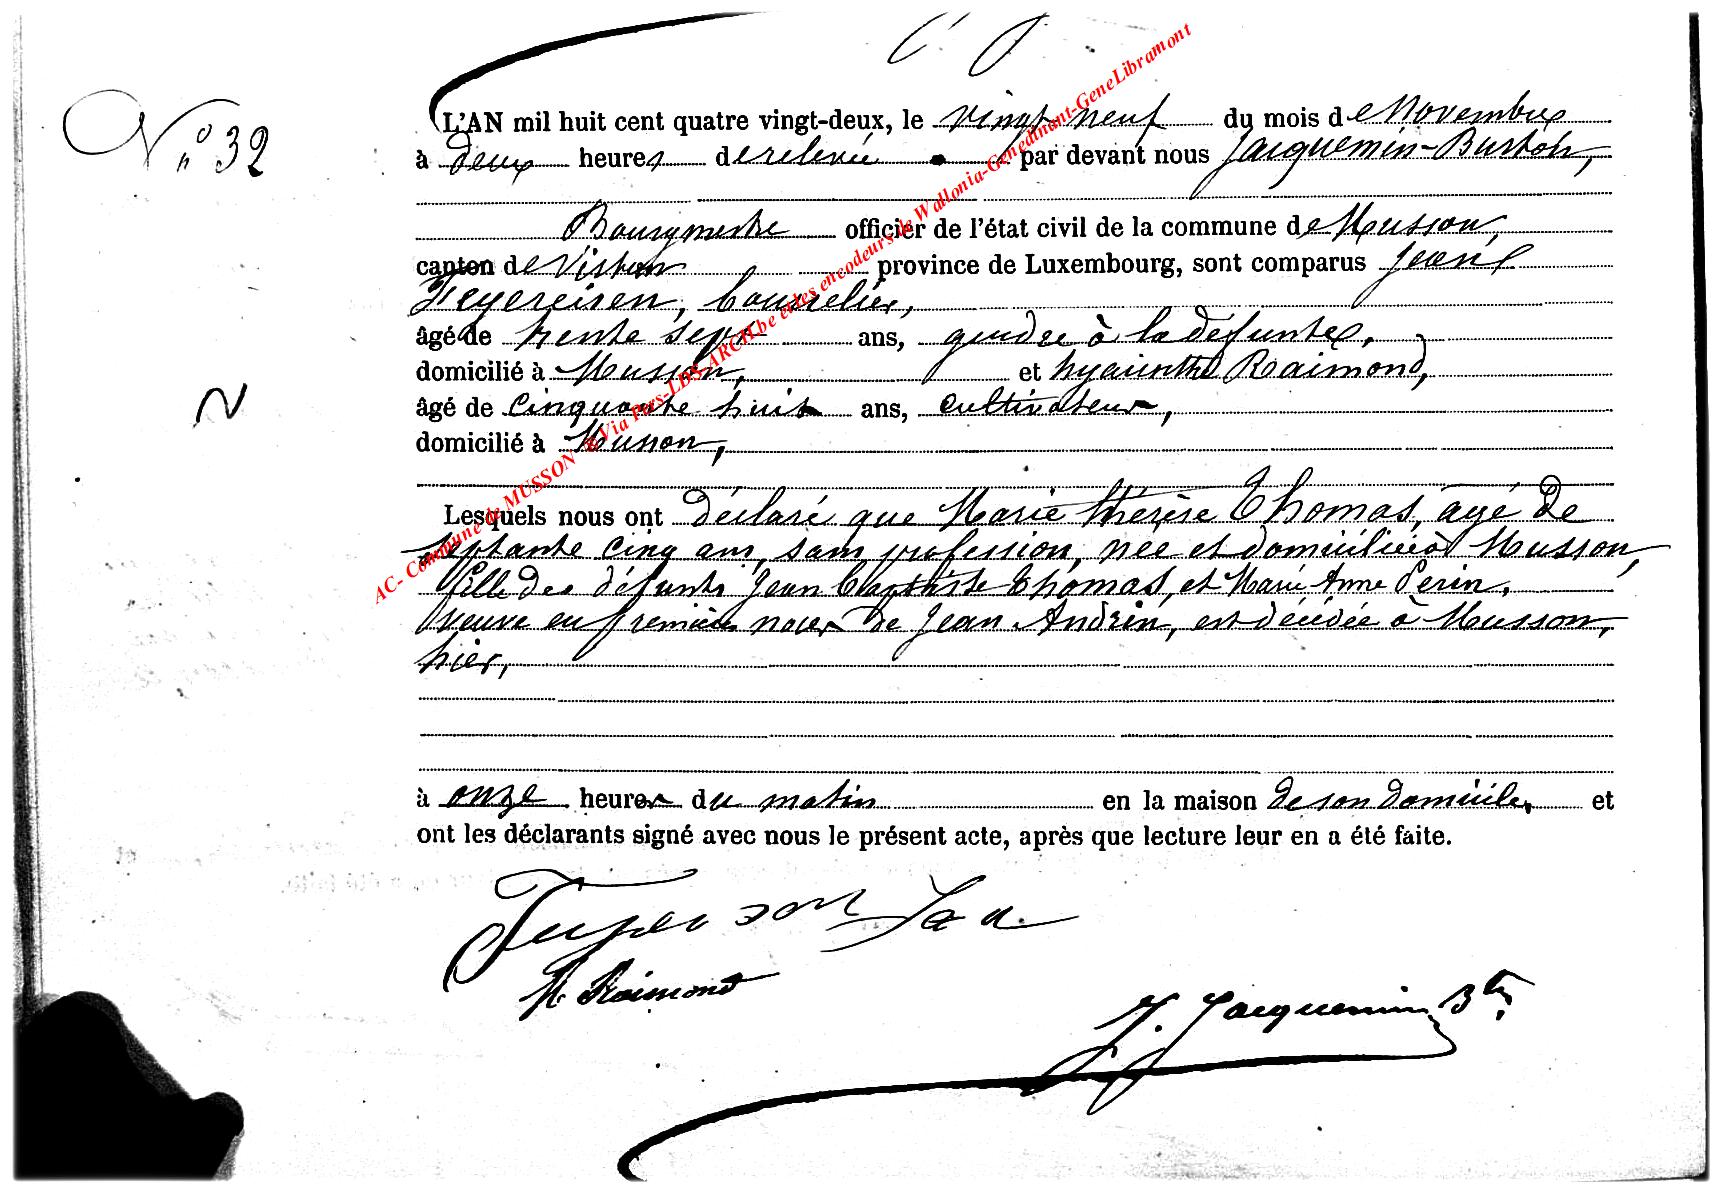 N° 32
L'AN mil huit cent quatre vingt-deux, le vingt neuf du mois de Novembre
à deux heures de relevée par devant nous Jacquemin-Burton,
Bourgmestre officier de l'état civil de la commune de Musson,
canton de Virton province de Luxembourg, sont comparus Jean
Feyereisen, bourrelier,
âgé de trente sept ans, gendre à la défunte,
domicilié à Musson, et hyacinthe Raimond,
âgé de cinquante huit ans, cultivateur,
domicilié à Musson,
Lesquels nous ont déclaré que Marie thérèse Thomas, agé de
septante cinq ans, sans profession, née et domiciliée à Musson,
fille des défunts Jean Baptiste Thomas, et Marie Anne Perin,
veuve en premières noces de Jean Andrin, est décédée à Musson,
hier,
à onze heures du matin en la maison de son domicile, et
ont les déclarants signé avec nous le présent acte, après que lecture leur en a été faite.
H. Raimond
J. Jacquemin Bton
AC- Commune de MUSSON & Via Pers-LDS-ARCH.be et les encodeurs de Wallonia-Genedinant-GeneLibramont